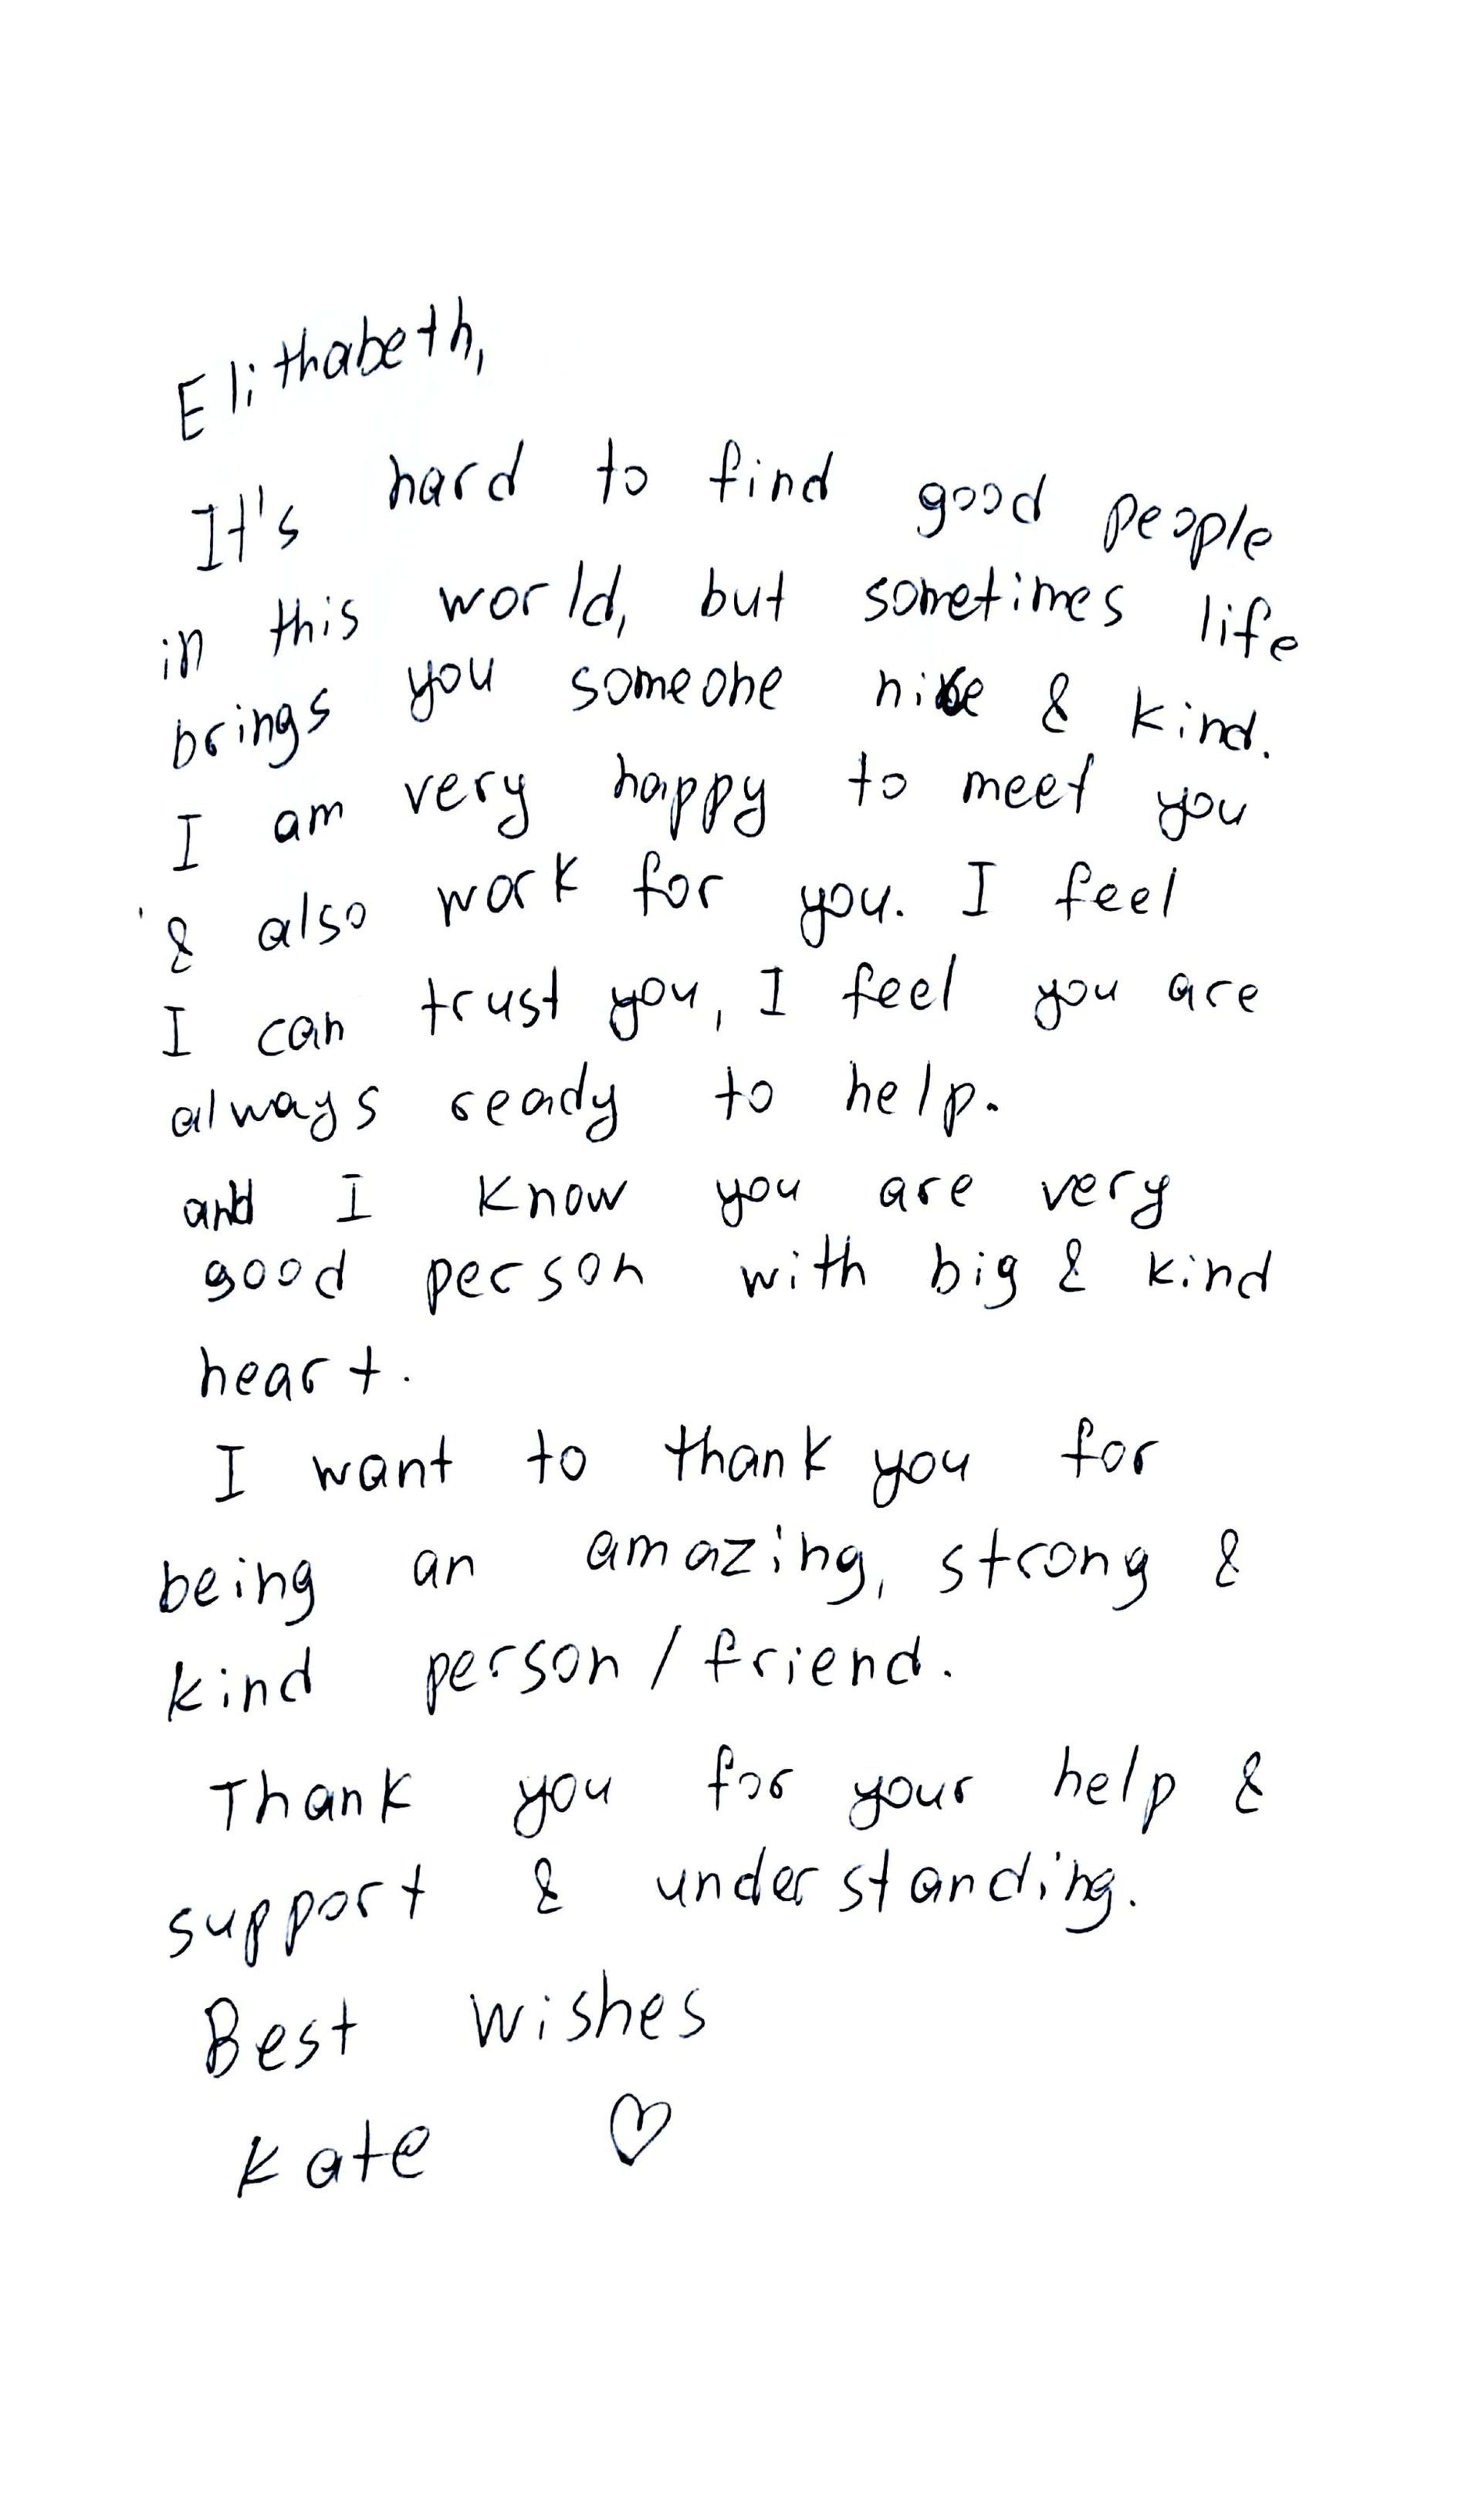 Elithabeth,
It's hard to find good people
in this world, but sometimes life
brings you someone nice & kind.
I am very happy to meet you
& also work for you. I feel
I can trust you, I feel you are
always ready to help.
and I know you are very
good person with big & kind
heart.
I want to thank you for
being an amazing, strong &
kind person/friend.
Thank you for your help &
support & understanding.
Best Wishes
Kate ♡